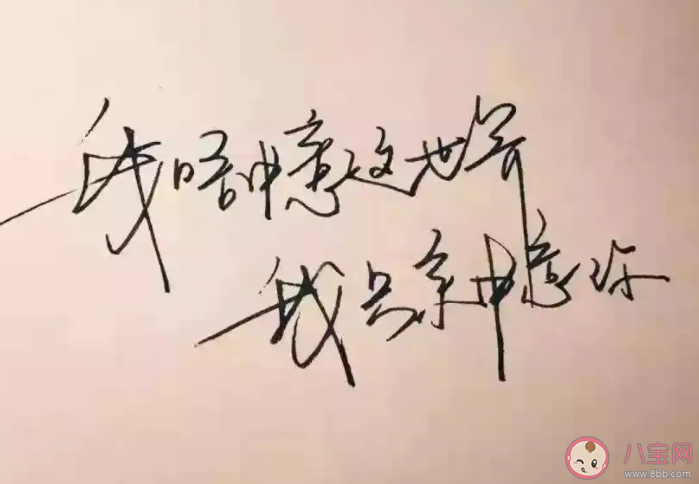 我唔中意这世界
我只系中意你
八宝网
www.8bb.com